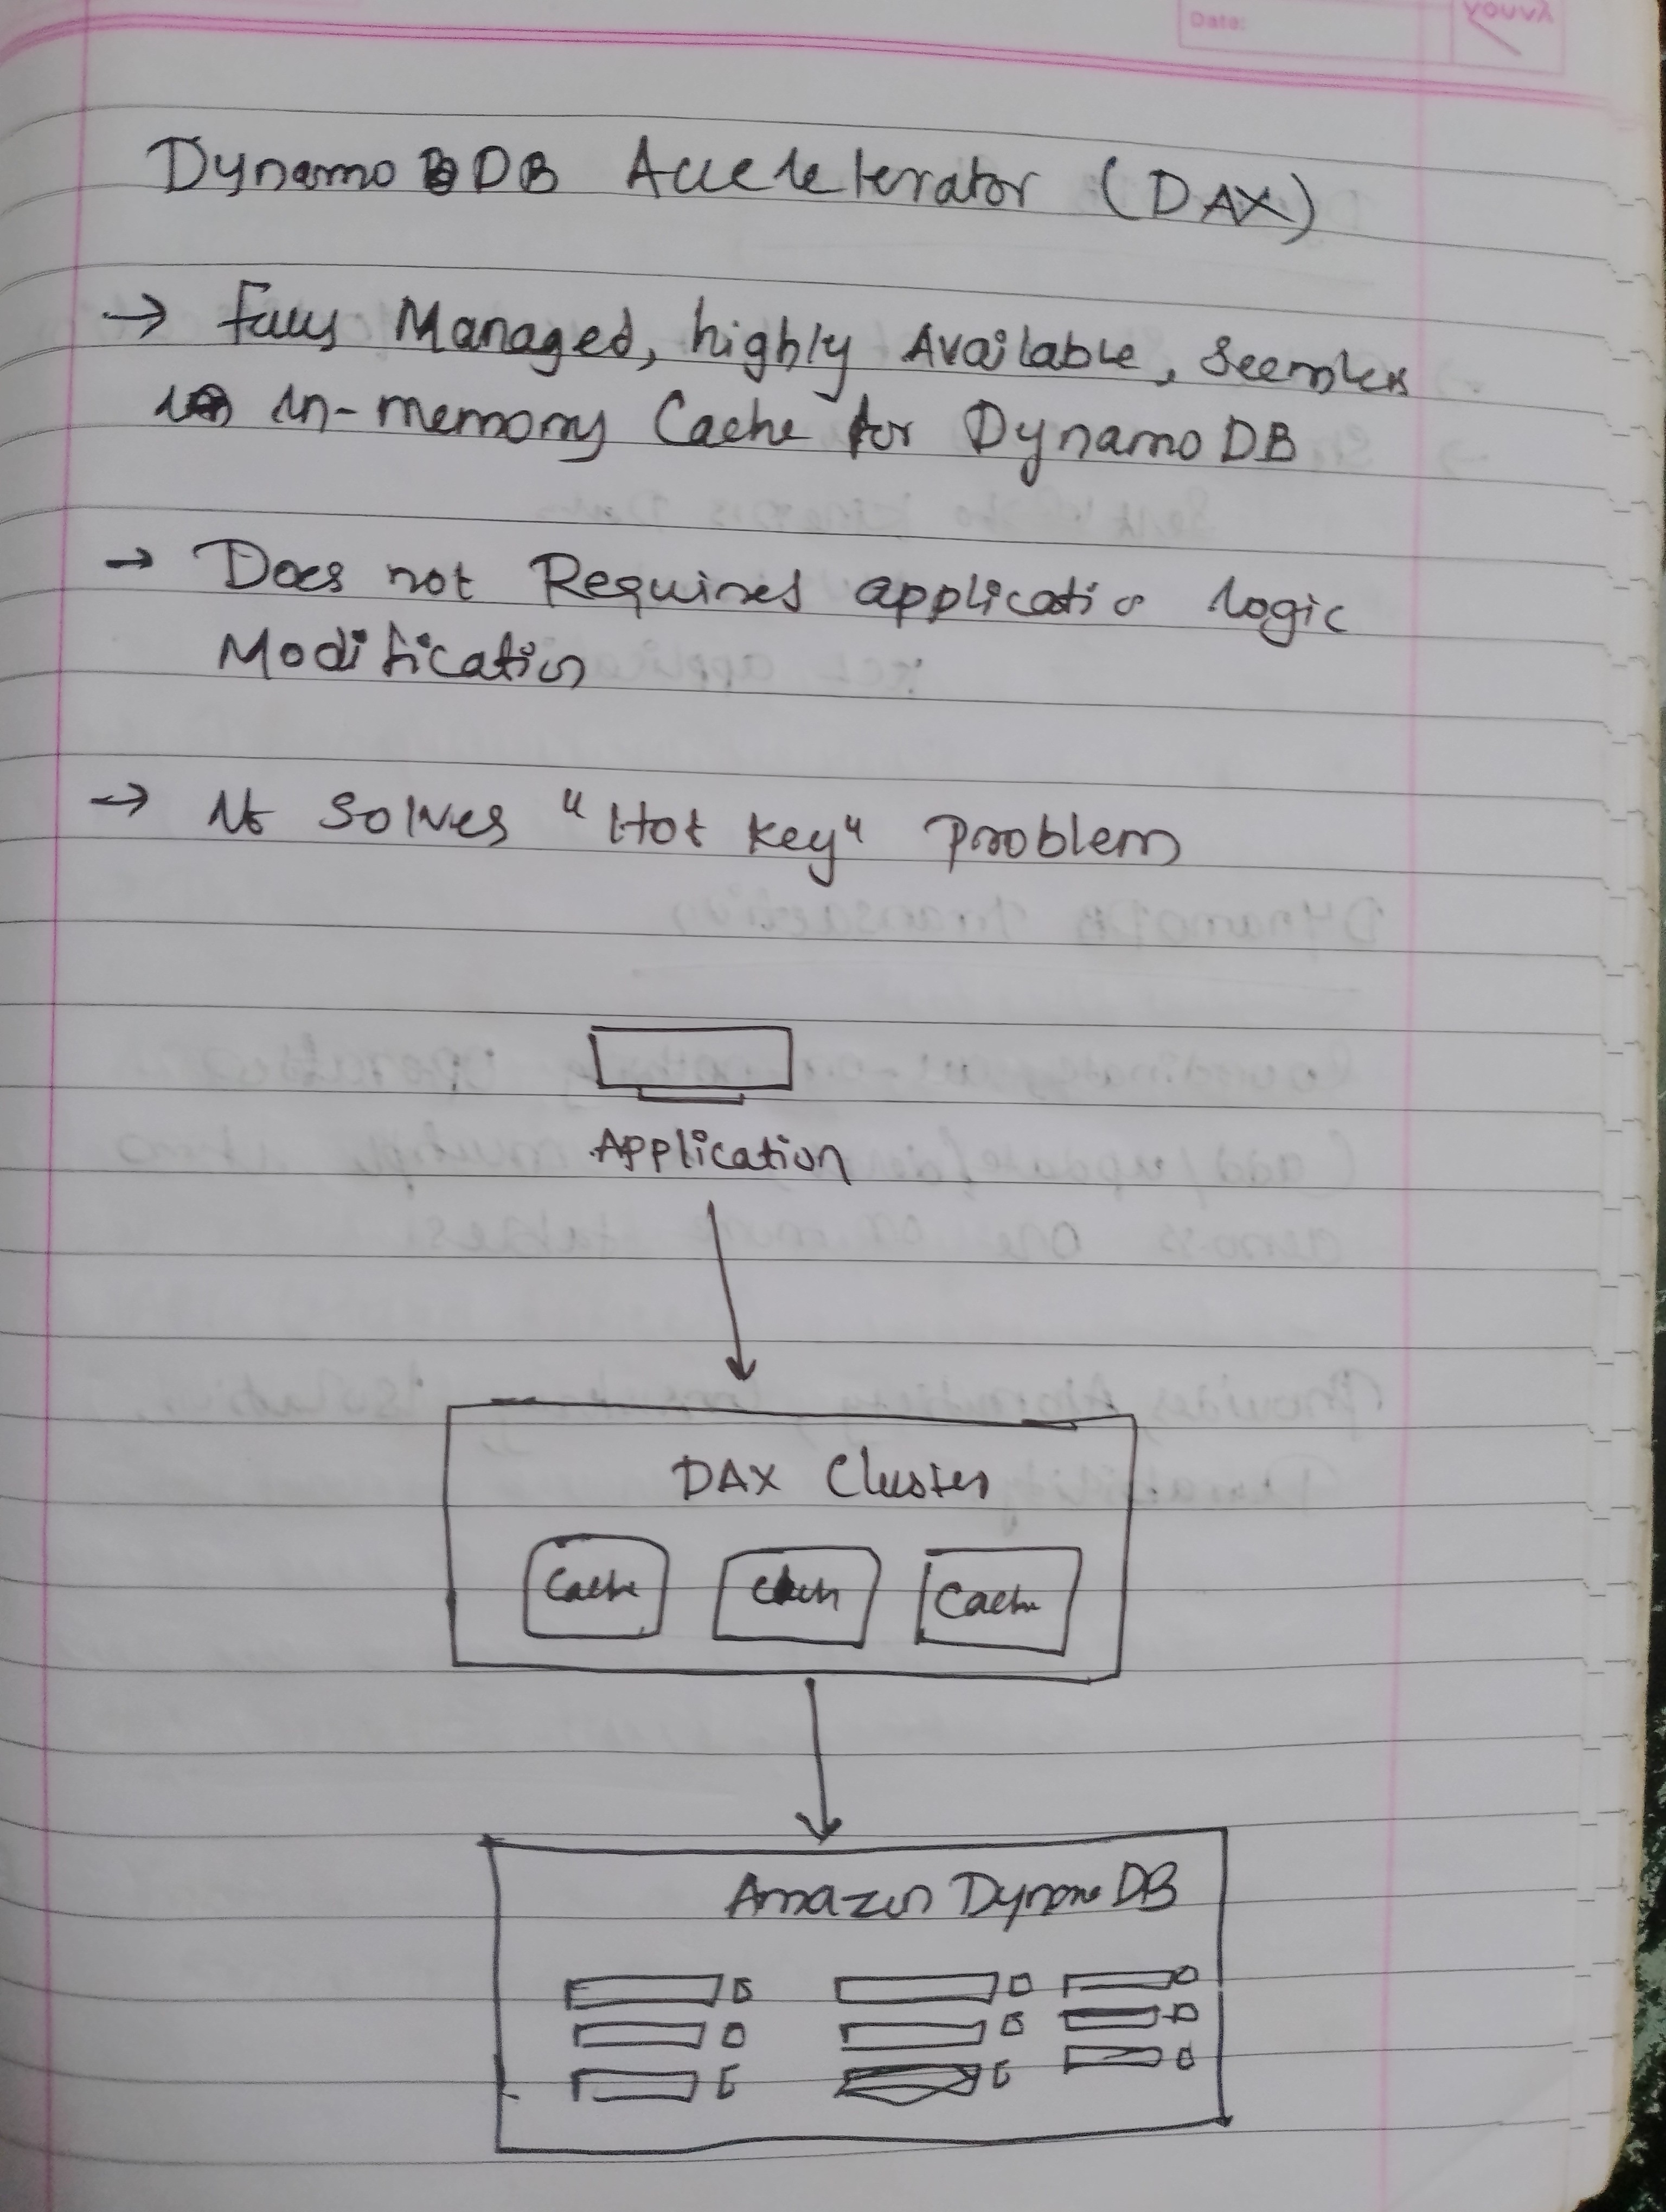 Date:
youvā
DynamoDB Acceleterator (DAX)
→ Fully Managed, highly Available, Seemless
In-memory Cache for DynamoDB
→ Does not Requires application logic
Modification
→ It Solves "Hot Key" Problem
Application
DAX Cluster
Cache Cache Cache
Amazon DynamoDB